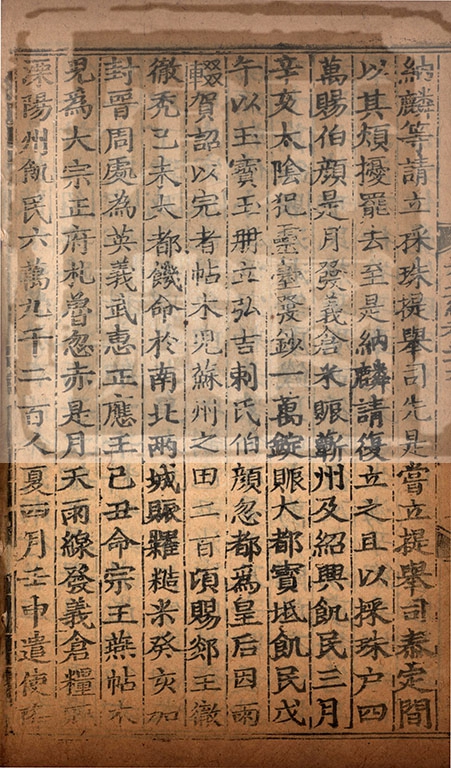 納麟等請立採珠提舉司先是嘗立提舉司泰定間
以其煩擾罷去至是納麟請復立之且以採珠户四
萬賜伯顏是月發義倉米賑蘄州及紹興飢民三月
辛亥太陰犯靈臺發鈔一萬錠賑大都寶坻飢民戊
午以玉寶玉册立弘吉剌氏伯顏忽都爲皇后因雨
輟賀詔以完者帖木兒蘇州之田二百頃賜郯王徹
徹禿己未大都饑命於南北兩城賑糶糙米癸亥加
封晋周處為英義武惠正應王己丑命宗王燕帖木
兒為大宗正府札魯忽赤是月天雨線發義倉糧賑
溧陽州飢民六萬九千二百人夏四月壬申遣使降